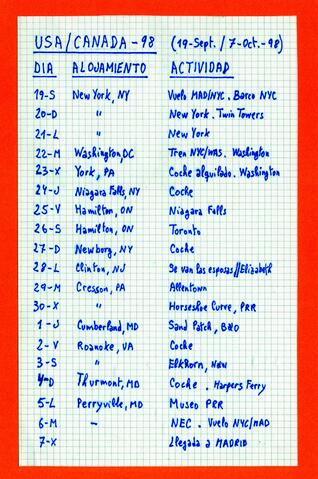 USA/CANADA-98 (19-Sept./7-Oct.-98)
DIA ALOJAMIENTO ACTIVIDAD
19-S New York, NY Vuelo MAD/NYC. Barco NYC
20-D " New York. Twin Towers
21-L " New York
22-M Washington, DC Tren NYC/WAS. Washington
23-X York, PA Coche alquilado. Washington
24-J Niagara Falls, NY Coche
25-V Hamilton, ON Niagara Falls
26-S Hamilton, ON Toronto
27-D Newborg, NY Coche
28-L Clinton, NJ Se van las esposas//Elizabeth
29-M Cresson, PA Allentown
30-X " Horseshoe Curve, PRR
1-J Cumberland, MD Sand Patch, B&O
2-V Roanoke, VA Coche
3-S " Elkhorn, N&W
4-D Thurmont, MD Coche. Harpers Ferry
5-L Perryville, MD Museo PRR
6-M - NEC. Vuelo NYC/MAD
7-X Llegada a MADRID